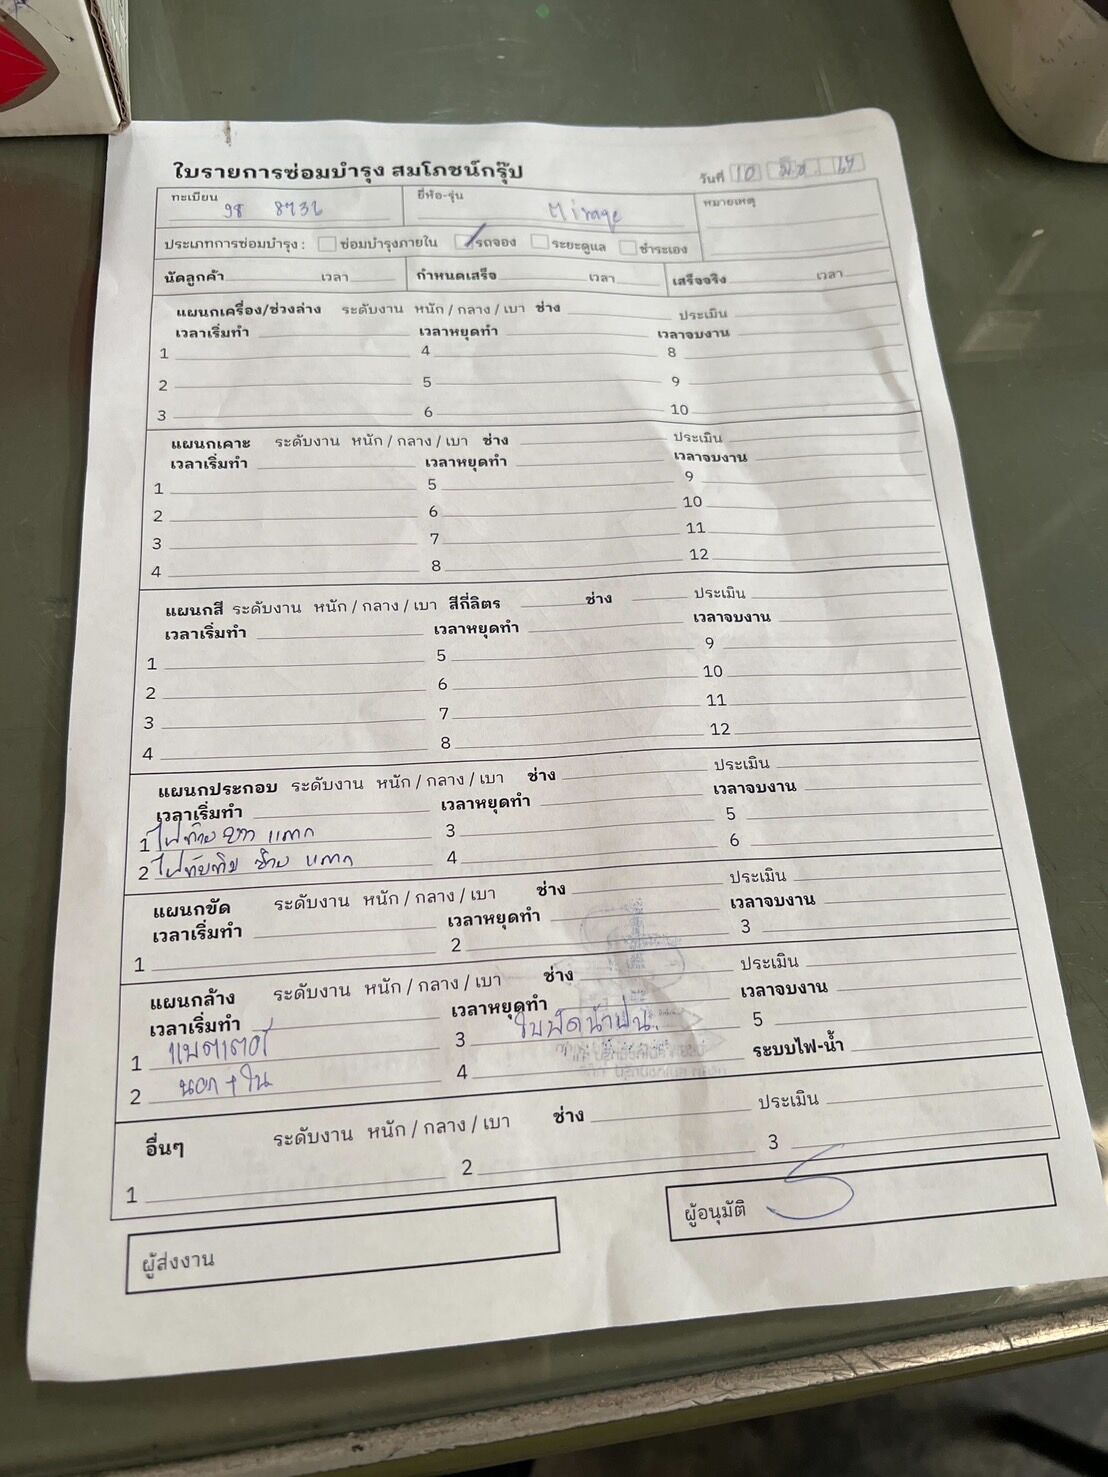 ใบรายการซ่อมบำรุง สมโภชน์กรุ๊ป
วันที่ 10 มิย 67
ทะเบียน ยี่ห้อ-รุ่น Mirage หมายเหตุ
ประเภทการซ่อมบำรุง : ซ่อมบำรุงภายใน รถจอง ระยะดูแล ชำระเอง
นัดลูกค้า เวลา กำหนดเสร็จ เวลา เสร็จจริง เวลา
แผนกเครื่อง/ช่วงล่าง ระดับงาน หนัก / กลาง / เบา ช่าง ประเมิน
เวลาเริ่มทำ เวลาหยุดทำ เวลาจบงาน
1 4 8
2 5 9
3 6 10
แผนกเคาะ ระดับงาน หนัก / กลาง / เบา ช่าง ประเมิน
เวลาเริ่มทำ เวลาหยุดทำ เวลาจบงาน
1 5 9
2 6 10
3 7 11
4 8 12
แผนกสี ระดับงาน หนัก / กลาง / เบา สีกี่ลิตร ช่าง ประเมิน
เวลาเริ่มทำ เวลาหยุดทำ เวลาจบงาน
1 5 9
2 6 10
3 7 11
4 8 12
แผนกประกอบ ระดับงาน หนัก / กลาง / เบา ช่าง ประเมิน
เวลาเริ่มทำ เวลาหยุดทำ เวลาจบงาน
1 ไฟท้าย ขวา แตก 3 5
2 ไฟทับทิม ซ้าย แตก 4 6
แผนกขัด ระดับงาน หนัก / กลาง / เบา ช่าง ประเมิน
เวลาเริ่มทำ เวลาหยุดทำ เวลาจบงาน
1 2 3
แผนกล้าง ระดับงาน หนัก / กลาง / เบา ช่าง ประเมิน
เวลาเริ่มทำ เวลาหยุดทำ เวลาจบงาน
1 แบตเตอรี่ 3 ใบปัดน้ำฝน 5
2 นอก + ใน 4 ระบบไฟ-น้ำ
อื่นๆ ระดับงาน หนัก / กลาง / เบา ช่าง ประเมิน
1 2 3
ผู้ส่งงาน ผู้อนุมัติ